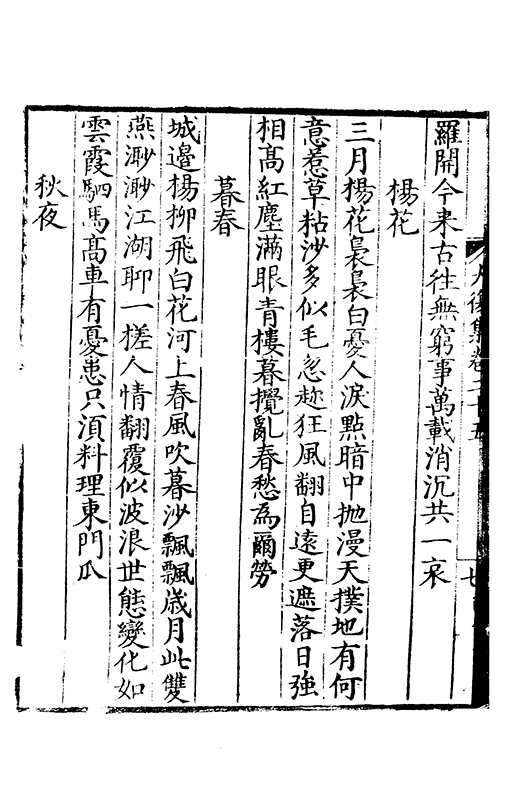 羅開今来古往無窮事萬載消沉共一哀
楊花
三月楊花裊裊白憂人淚點暗中抛漫天撲地有何
意惹草粘沙多似毛忽趂狂風翻自遠更遮落日強
相髙紅塵滿眼青樓暮攪亂春愁為爾勞
暮春
城邉楊柳飛白花河上春風吹暮沙飄飄歳月此雙
燕渺渺江湖聊一槎人情翻覆似波浪世態變化如
雲霞駟馬髙車有憂患只湏料理東門瓜
秋夜